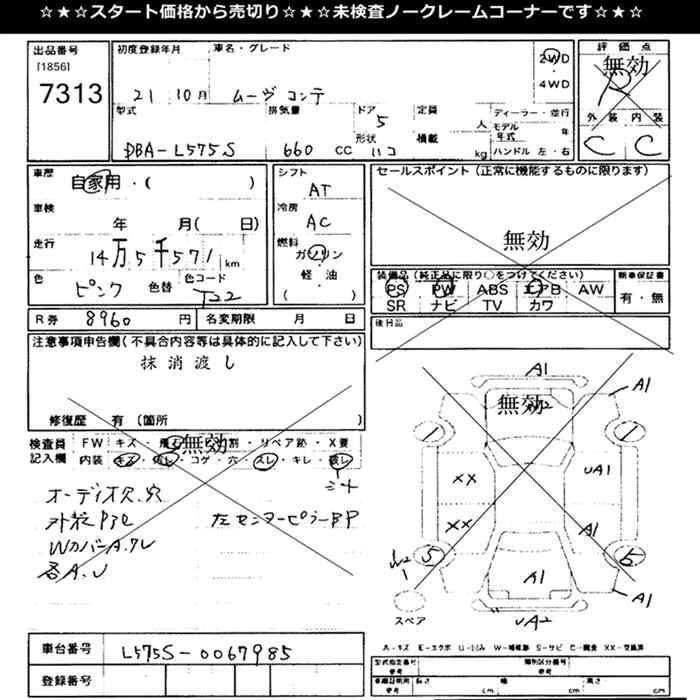 ☆★☆★スタート価格から売切り☆★☆★未検査ノークレームコーナーです☆★☆
出品番号 初度登録年月 車名・グレード 評価点
[1856] 2WD 無効
7313 21 10月 ムーヴ コンテ 4WD R
型式 排気量 ドア 5 定員 人 ディーラー・並行 外装 内装
モデル年式 年
DBA-L575S 660 CC 形状 ハコ 積載 kg ハンドル 左・右 C C
車歴 自家用・( ) シフト AT セールスポイント(正常に機能するものに限ります)
車検 年 月( 日) 冷房 AC
走行 14万5千571km 燃料 ガソリン 無効
軽・油
色 ピンク 色替 色コード T22 ( ) 装備品(純正品に限り○をつけてください) 新車保証書
PS PW ABS エアB AW 有・無
SR ナビ TV カワ
R券 8960円 名変期限 月 日 後日品
注意事項申告欄(不具合内容等は具体的に記入して下さい)
抹消渡し
A1 A1
無効
修復歴 有(箇所
検査員 FW キズ・ 無効 割・リペア跡・X要
記入欄 内装 キズ・ コゲ・穴・スレ・キレ・
オーディオ欠.穴
XX UA1
左センターピラーBP XX A1
WカバーA.ワレ
各A.U
1 A1 A1
スペア UA2
車台番号 L575S-0067985
A-キズ E-エクボ U-凹み W-補修跡 S-サビ C-腐食 XX-交換済
型式指定番号 参考 類別区分番号 参考
登録番号 車検証明用 参考 長さ cm 幅 cm 高さ cm